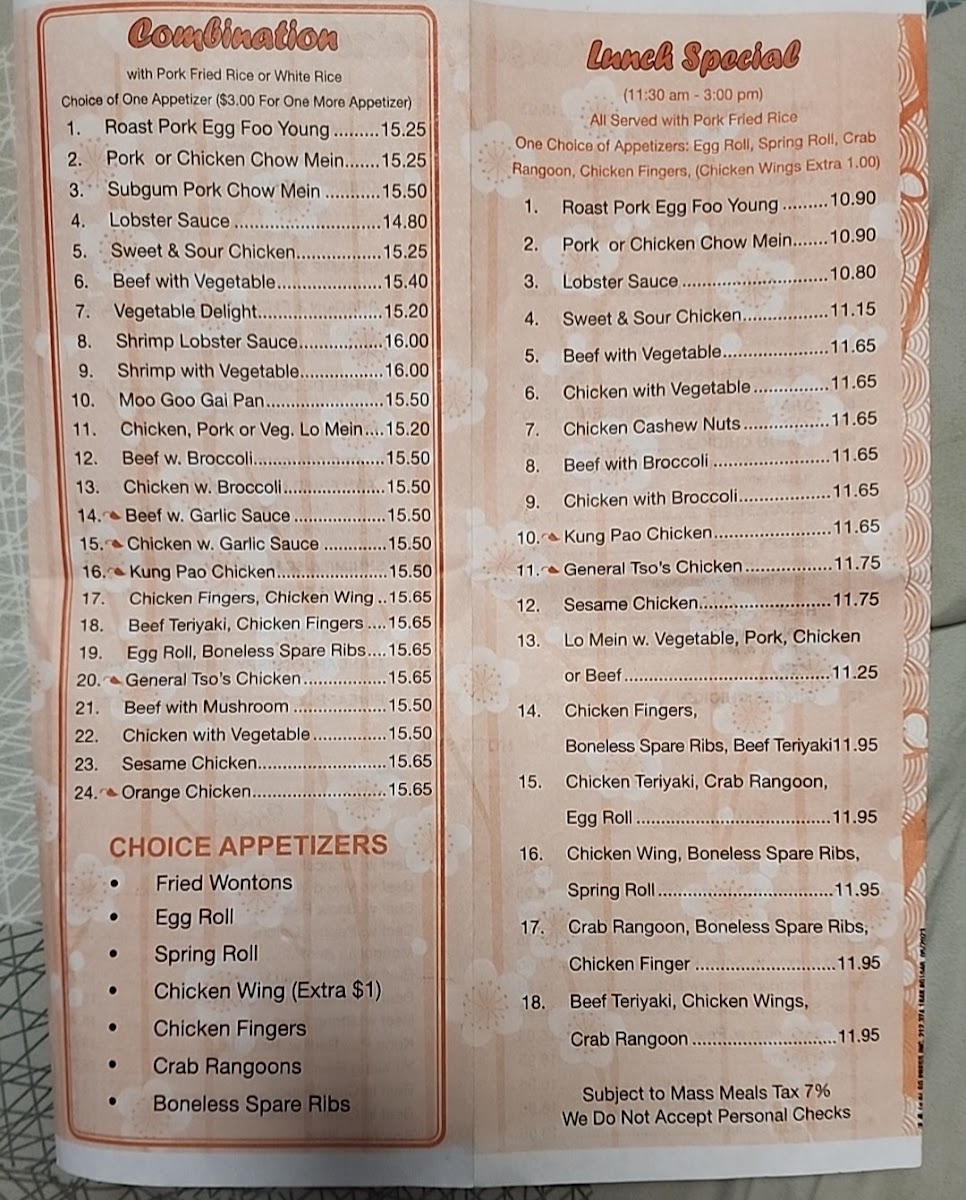 Combination
with Pork Fried Rice or White Rice
Choice of One Appetizer ($3.00 For One More Appetizer)
1. Roast Pork Egg Foo Young .........15.25
2. Pork or Chicken Chow Mein.......15.25
3. Subgum Pork Chow Mein ...........15.50
4. Lobster Sauce ..........................14.80
5. Sweet & Sour Chicken.................15.25
6. Beef with Vegetable.....................15.40
7. Vegetable Delight........................15.20
8. Shrimp Lobster Sauce................16.00
9. Shrimp with Vegetable................16.00
10. Moo Goo Gai Pan.......................15.50
11. Chicken, Pork or Veg. Lo Mein....15.20
12. Beef w. Broccoli..........................15.50
13. Chicken w. Broccoli....................15.50
14. Beef w. Garlic Sauce ..................15.50
15. Chicken w. Garlic Sauce ............15.50
16. Kung Pao Chicken......................15.50
17. Chicken Fingers, Chicken Wing ..15.65
18. Beef Teriyaki, Chicken Fingers ....15.65
19. Egg Roll, Boneless Spare Ribs....15.65
20. General Tso's Chicken................15.65
21. Beef with Mushroom ..................15.50
22. Chicken with Vegetable..............15.50
23. Sesame Chicken.........................15.65
24. Orange Chicken..........................15.65
CHOICE APPETIZERS
• Fried Wontons
• Egg Roll
• Spring Roll
• Chicken Wing (Extra $1)
• Chicken Fingers
• Crab Rangoons
• Boneless Spare Ribs
Lunch Special
(11:30 am - 3:00 pm)
All Served with Pork Fried Rice
One Choice of Appetizers: Egg Roll, Spring Roll, Crab
Rangoon, Chicken Fingers, (Chicken Wings Extra 1.00)
1. Roast Pork Egg Foo Young .........10.90
2. Pork or Chicken Chow Mein.......10.90
3. Lobster Sauce ............................10.80
4. Sweet & Sour Chicken.................11.15
5. Beef with Vegetable.....................11.65
6. Chicken with Vegetable ...............11.65
7. Chicken Cashew Nuts .................11.65
8. Beef with Broccoli .......................11.65
9. Chicken with Broccoli..................11.65
10. Kung Pao Chicken.......................11.65
11. General Tso's Chicken.................11.75
12. Sesame Chicken..........................11.75
13. Lo Mein w. Vegetable, Pork, Chicken
or Beef.........................................11.25
14. Chicken Fingers,
Boneless Spare Ribs, Beef Teriyaki11.95
15. Chicken Teriyaki, Crab Rangoon,
Egg Roll .......................................11.95
16. Chicken Wing, Boneless Spare Ribs,
Spring Roll...................................11.95
17. Crab Rangoon, Boneless Spare Ribs,
Chicken Finger ............................11.95
18. Beef Teriyaki, Chicken Wings,
Crab Rangoon .............................11.95
Subject to Mass Meals Tax 7%
We Do Not Accept Personal Checks